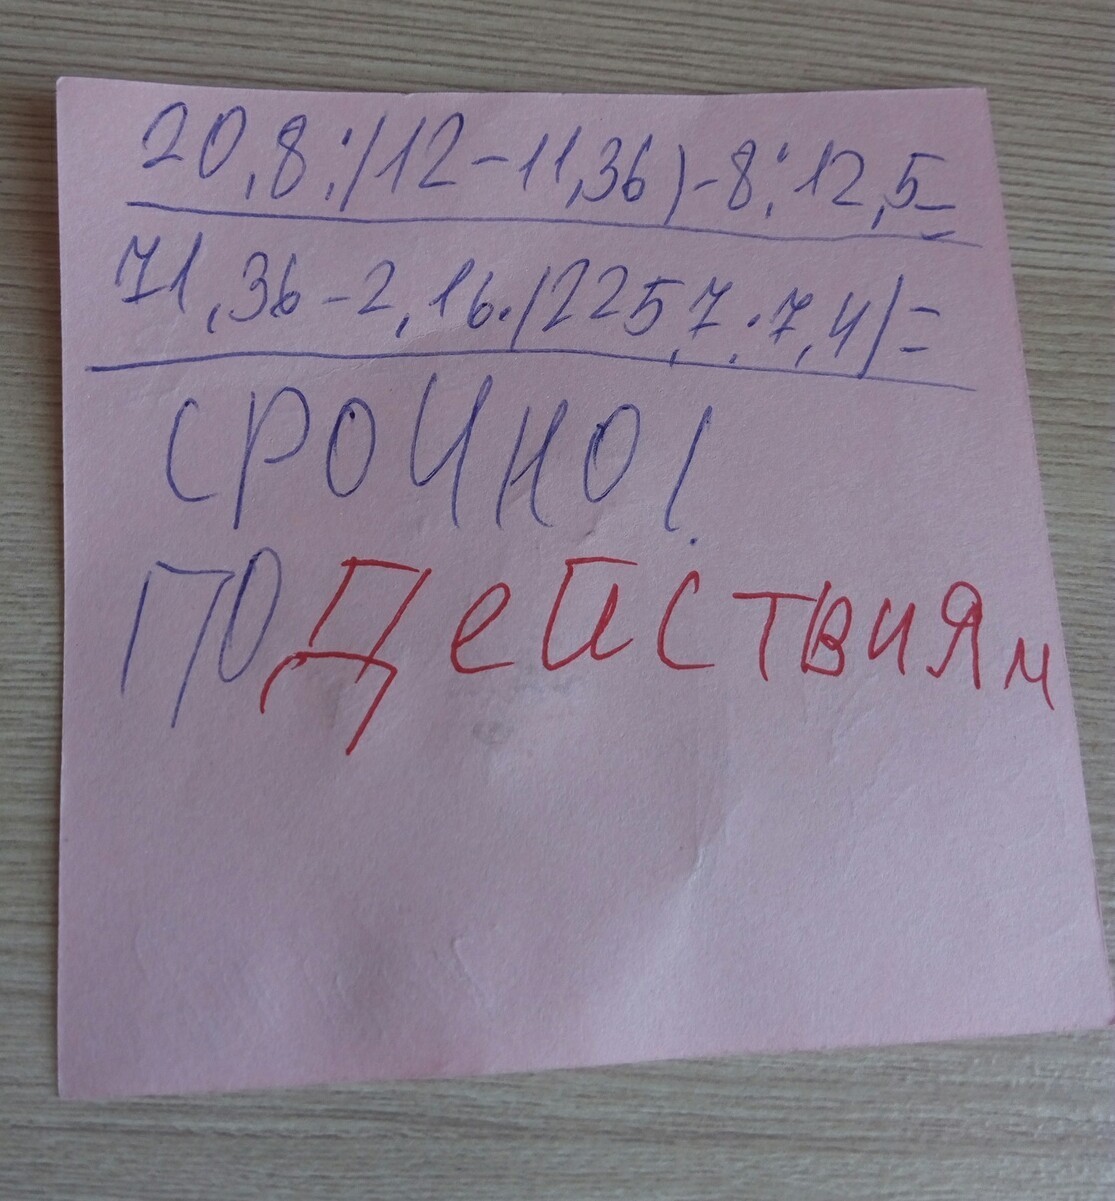 20,8:(12-11,36)-8:12,5=
71,36-2,16·(225,7:7,4)=
СРОЧНО!
ПО ДЕЙСТВИЯМ